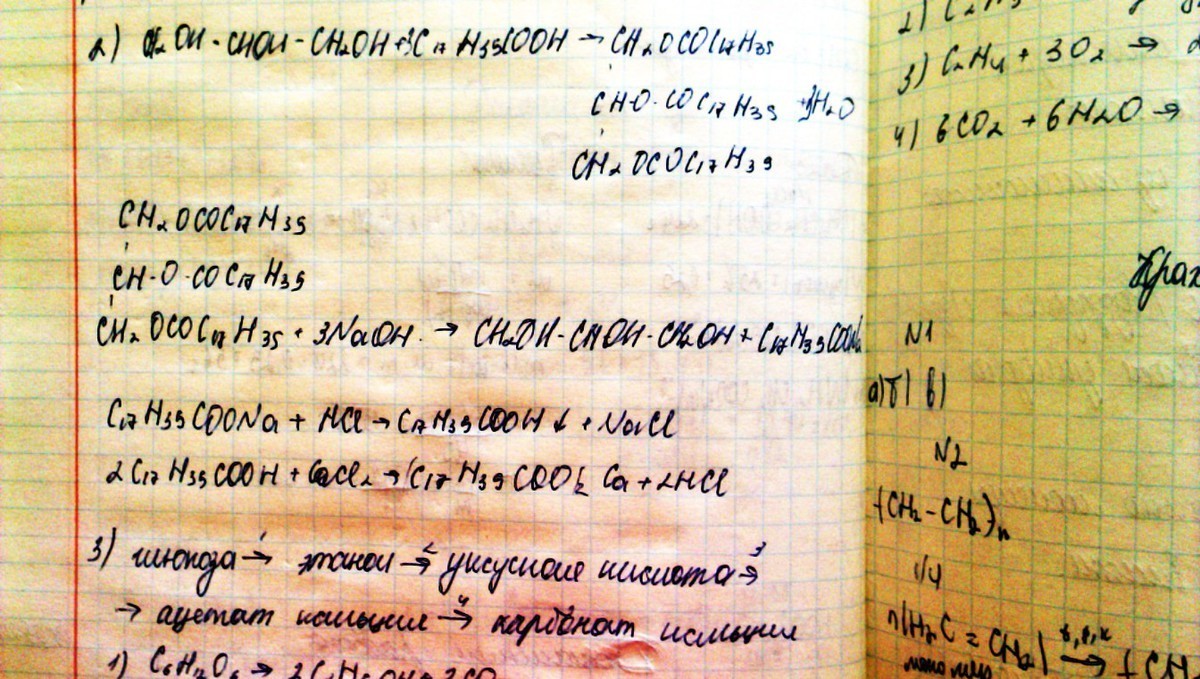 2) CH₂OH - CHOH - CH₂OH + 3C₁₇H₃₅COOH → CH₂OCOC₁₇H₃₅
CH-O-COC₁₇H₃₅ + 3H₂O
CH₂OCOC₁₇H₃₅
CH₂OCOC₁₇H₃₅
CH-O-COC₁₇H₃₅
CH₂OCOC₁₇H₃₅ + 3NaOH → CH₂OH-CHOH-CH₂OH + C₁₇H₃₅COONa
C₁₇H₃₅COONa + HCl → C₁₇H₃₅COOH↓ + NaCl
2C₁₇H₃₅COOH + CaCl₂ → (C₁₇H₃₅COO)₂Ca + 2HCl
3) глюкоза →¹ этанол →² уксусная кислота →³
→ ацетат кальция →⁴ карбонат кальция
1) C₆H₁₂O₆ → 2C₂H₅OH + 2CO
3) C₂H₄ + 3O₂ →
4) 6CO₂ + 6H₂O →
N1
а) б) в)
N2
(-CH₂-CH₂-)n
n(H₂C = CH₂) → (-CH
мономер